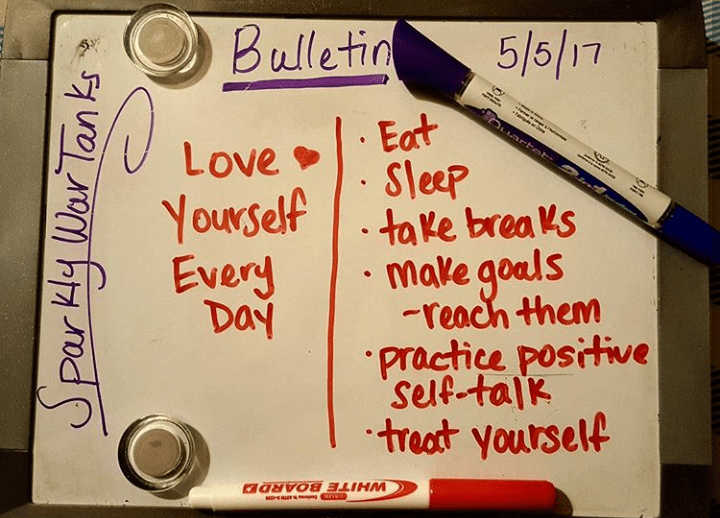 Bulletin
5/5/17
Sparkly War Tanks
Love
Yourself
Every
Day
· Eat
· Sleep
· take breaks
· make goals
-reach them
· practice positive
self-talk
· treat yourself
Quartet
WHITE BOARD